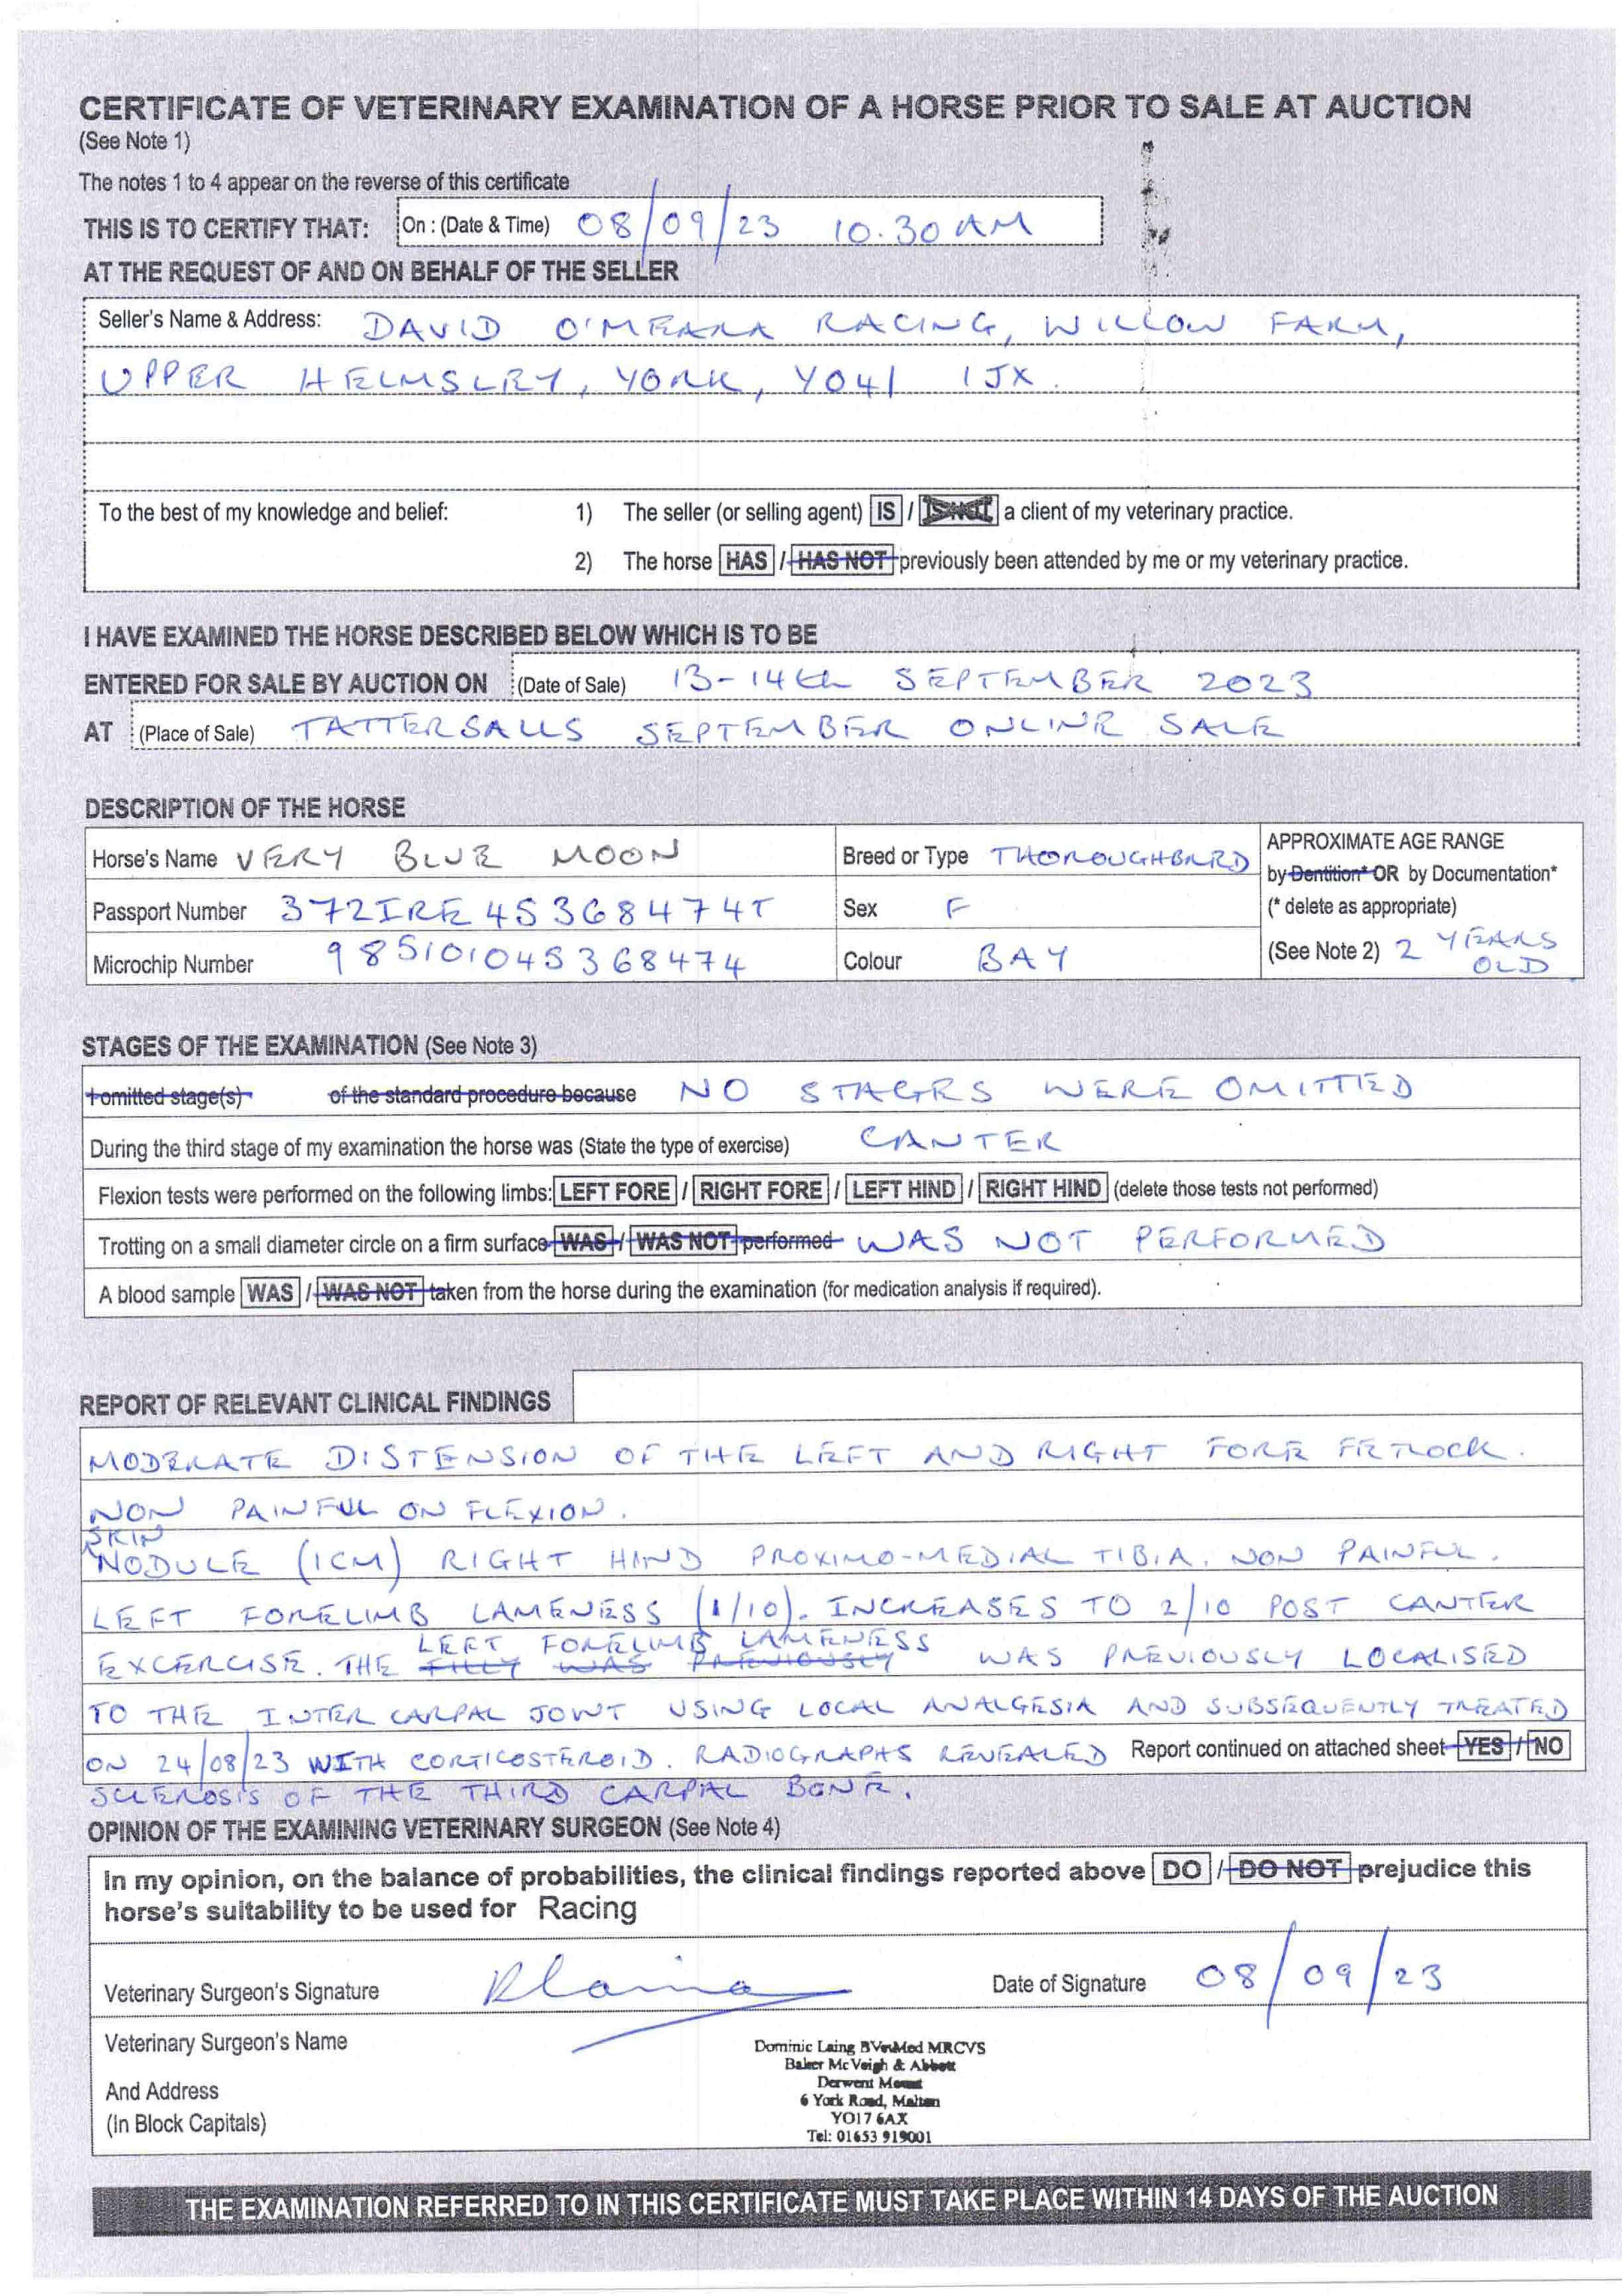 CERTIFICATE OF VETERINARY EXAMINATION OF A HORSE PRIOR TO SALE AT AUCTION
(See Note 1)
The notes 1 to 4 appear on the reverse of this certificate
THIS IS TO CERTIFY THAT: On : (Date & Time) 08/09/23 10.30 AM
AT THE REQUEST OF AND ON BEHALF OF THE SELLER
Seller's Name & Address: DAVID O'MEARA RACING, WILLOW FARM,
UPPER HELMSLEY, YORK, YO41 1JX.
To the best of my knowledge and belief: 1) The seller (or selling agent) IS / IS NOT a client of my veterinary practice.
2) The horse HAS / HAS NOT previously been attended by me or my veterinary practice.
I HAVE EXAMINED THE HORSE DESCRIBED BELOW WHICH IS TO BE
ENTERED FOR SALE BY AUCTION ON (Date of Sale) 13-14th SEPTEMBER 2023
AT (Place of Sale) TATTERSALLS SEPTEMBER ONLINE SALE
DESCRIPTION OF THE HORSE
Horse's Name VERY BLUE MOON Breed or Type THOROUGHBRED APPROXIMATE AGE RANGE
by Dentition* OR by Documentation*
Passport Number 372IRE45368474T Sex F (* delete as appropriate)
Microchip Number 985101045368474 Colour BAY (See Note 2) 2 YEARS OLD
STAGES OF THE EXAMINATION (See Note 3)
I omitted stage(s) of the standard procedure because NO STAGES WERE OMITTED
During the third stage of my examination the horse was (State the type of exercise) CANTER
Flexion tests were performed on the following limbs: LEFT FORE / RIGHT FORE / LEFT HIND / RIGHT HIND (delete those tests not performed)
Trotting on a small diameter circle on a firm surface WAS / WAS NOT performed WAS NOT PERFORMED
A blood sample WAS / WAS NOT taken from the horse during the examination (for medication analysis if required).
REPORT OF RELEVANT CLINICAL FINDINGS
MODERATE DISTENSION OF THE LEFT AND RIGHT FORE FETLOCK.
NON PAINFUL ON FLEXION.
SKIN
NODULE (1CM) RIGHT HIND PROXIMO-MEDIAL TIBIA. NON PAINFUL.
LEFT FORELIMB LAMENESS (1/10). INCREASES TO 2/10 POST CANTER
LEFT FORELIMB LAMENESS
EXCERCISE. THE FILLY WAS PREVIOUSLY WAS PREVIOUSLY LOCALISED
TO THE INTER CARPAL JOINT USING LOCAL ANALGESIA AND SUBSEQUENTLY TREATED
ON 24/08/23 WITH CORTICOSTEROID. RADIOGRAPHS REVEALED Report continued on attached sheet YES / NO
SCLEROSIS OF THE THIRD CARPAL BONE.
OPINION OF THE EXAMINING VETERINARY SURGEON (See Note 4)
In my opinion, on the balance of probabilities, the clinical findings reported above DO / DO NOT prejudice this
horse's suitability to be used for Racing
Veterinary Surgeon's Signature Date of Signature 08/09/23
Veterinary Surgeon's Name
And Address
(In Block Capitals)
Dominic Laing BVetMed MRCVS
Baker McVeigh & Abbott
Derwent Mount
6 York Road, Malton
YO17 6AX
Tel: 01653 919001
THE EXAMINATION REFERRED TO IN THIS CERTIFICATE MUST TAKE PLACE WITHIN 14 DAYS OF THE AUCTION